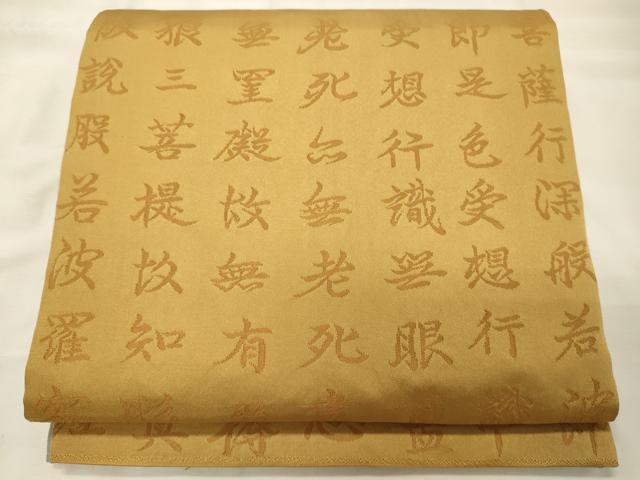 菩薩行深般若波
即是色受想行
受想行識無眼
老死亦無老死
無罣礙故無有
三菩提故知
說般若波羅